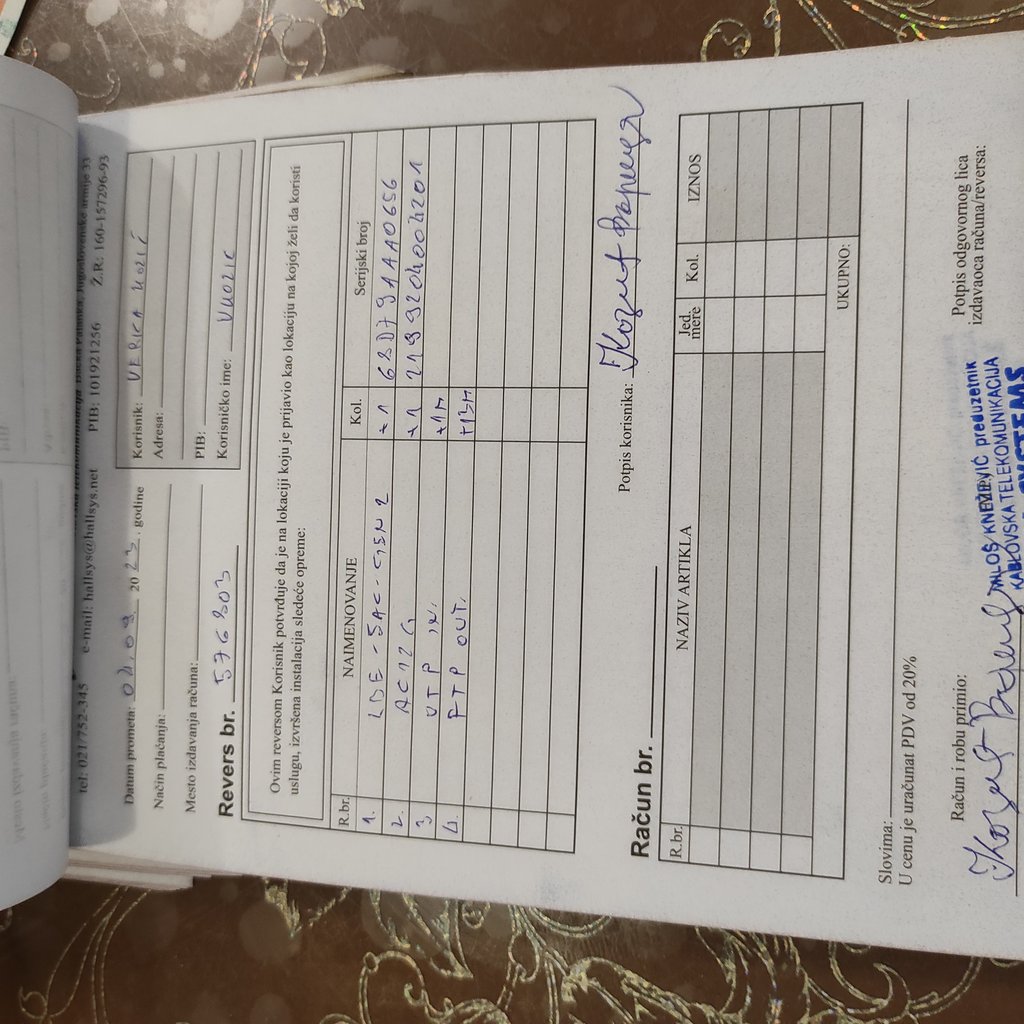 tel: 021/752-345 e-mail: hallsys@hallsys.net PIB: 101921256 Ž.R.: 160-157296-93
Datum prometa: 04.09 2023. godine
Način plaćanja:
Mesto izdavanja računa:
Revers br. 576303
Korisnik: VERICA
Adresa:
PIB:
Korisničko ime:
Ovim reversom Korisnik potvrđuje da je na lokaciji koju je prijavio kao lokaciju na kojoj želi da koristi
uslugu, izvršena instalacija sledeće opreme:
R.br. NAIMENOVANJE Kol. Serijski broj
1. LBE-5AC-GEN2 +1
2. AC12G +1 21993204004201
3 UTP IN.
4. FTP OUT. +13M
Potpis korisnika:
Račun br.
R.br. NAZIV ARTIKLA Jed. mere Kol. IZNOS
UKUPNO:
Slovima:
U cenu je uračunat PDV od 20%
Račun i robu primio:
Potpis odgovornog lica
izdavaoca računa/reversa:
MILOŠ KNEŽEVIĆ preduzetnik
KABLOVSKA TELEKOMUNIKACIJA
SYSTEMS